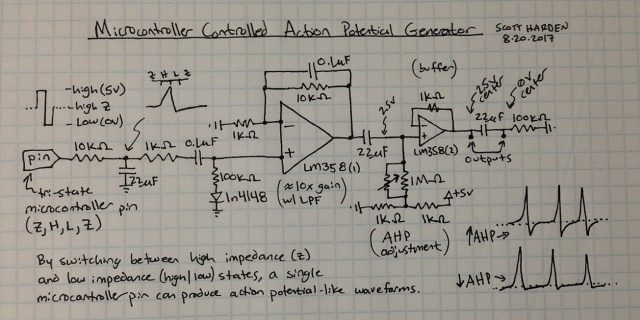 Microcontroller Controlled Action Potential Generator
SCOTT HARDEN
8.20.2017
high (5V)
high Z
Low (0V)
Z H L Z
0.1uF
10KΩ
(buffer)
2.5V center
0V center
1KΩ
pin
10KΩ
1KΩ
0.1uF
1KΩ
22uF
100KΩ
1n4148
LM358(1)
(≈10x gain
w/ LPF)
2.5V
22uF
LM358(2)
22uF
100KΩ
outputs
1MΩ
+5v
1KΩ
1KΩ
(AHP
adjustment)
tri-state
microcontroller pin
(Z,H,L,Z)
↑AHP→
↓AHP→
By switching between high impedance (z)
and low impedance (high/low) states, a single
microcontroller pin can produce action potential-like waveforms.